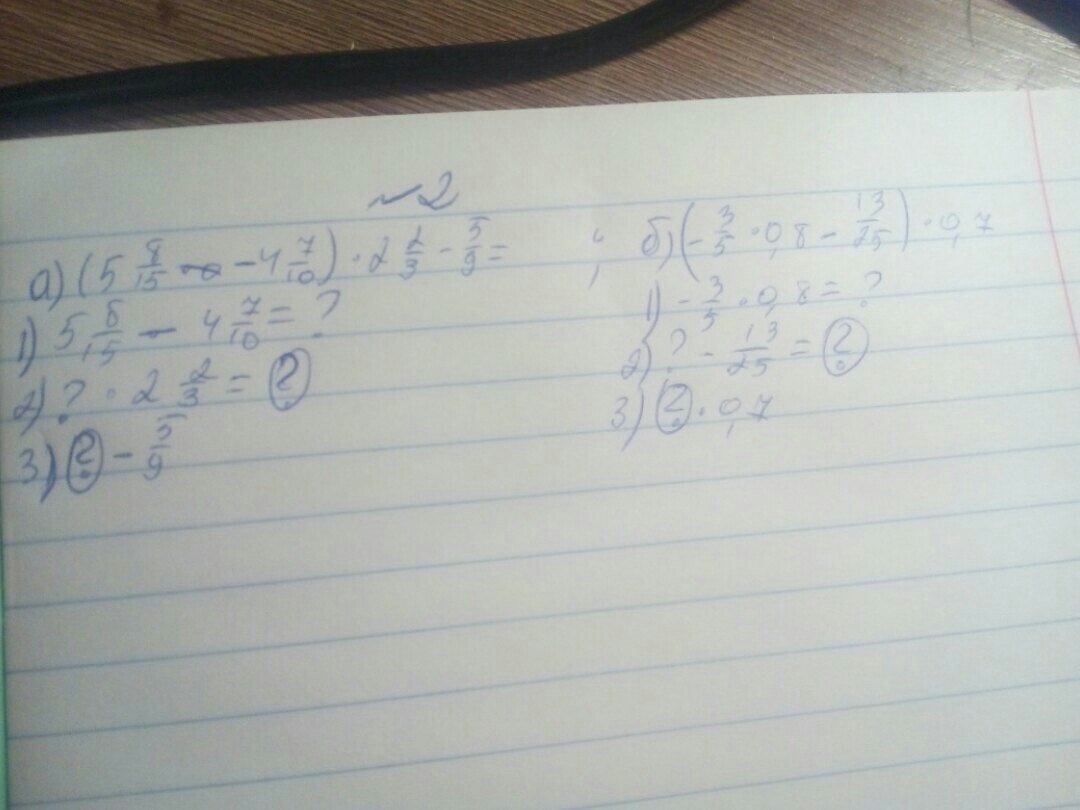 ~2
а) (5 8/15 - 4 7/10) · 2 2/3 - 5/9 = ;
1) 5 8/15 - 4 7/10 = ?
2) ? · 2 2/3 = ?
3) ? - 5/9
б) (- 3/5 · 0,8 - 13/25) · 0,7
1) - 3/5 · 0,8 = ?
2) ? - 13/25 = ?
3) ? · 0,7